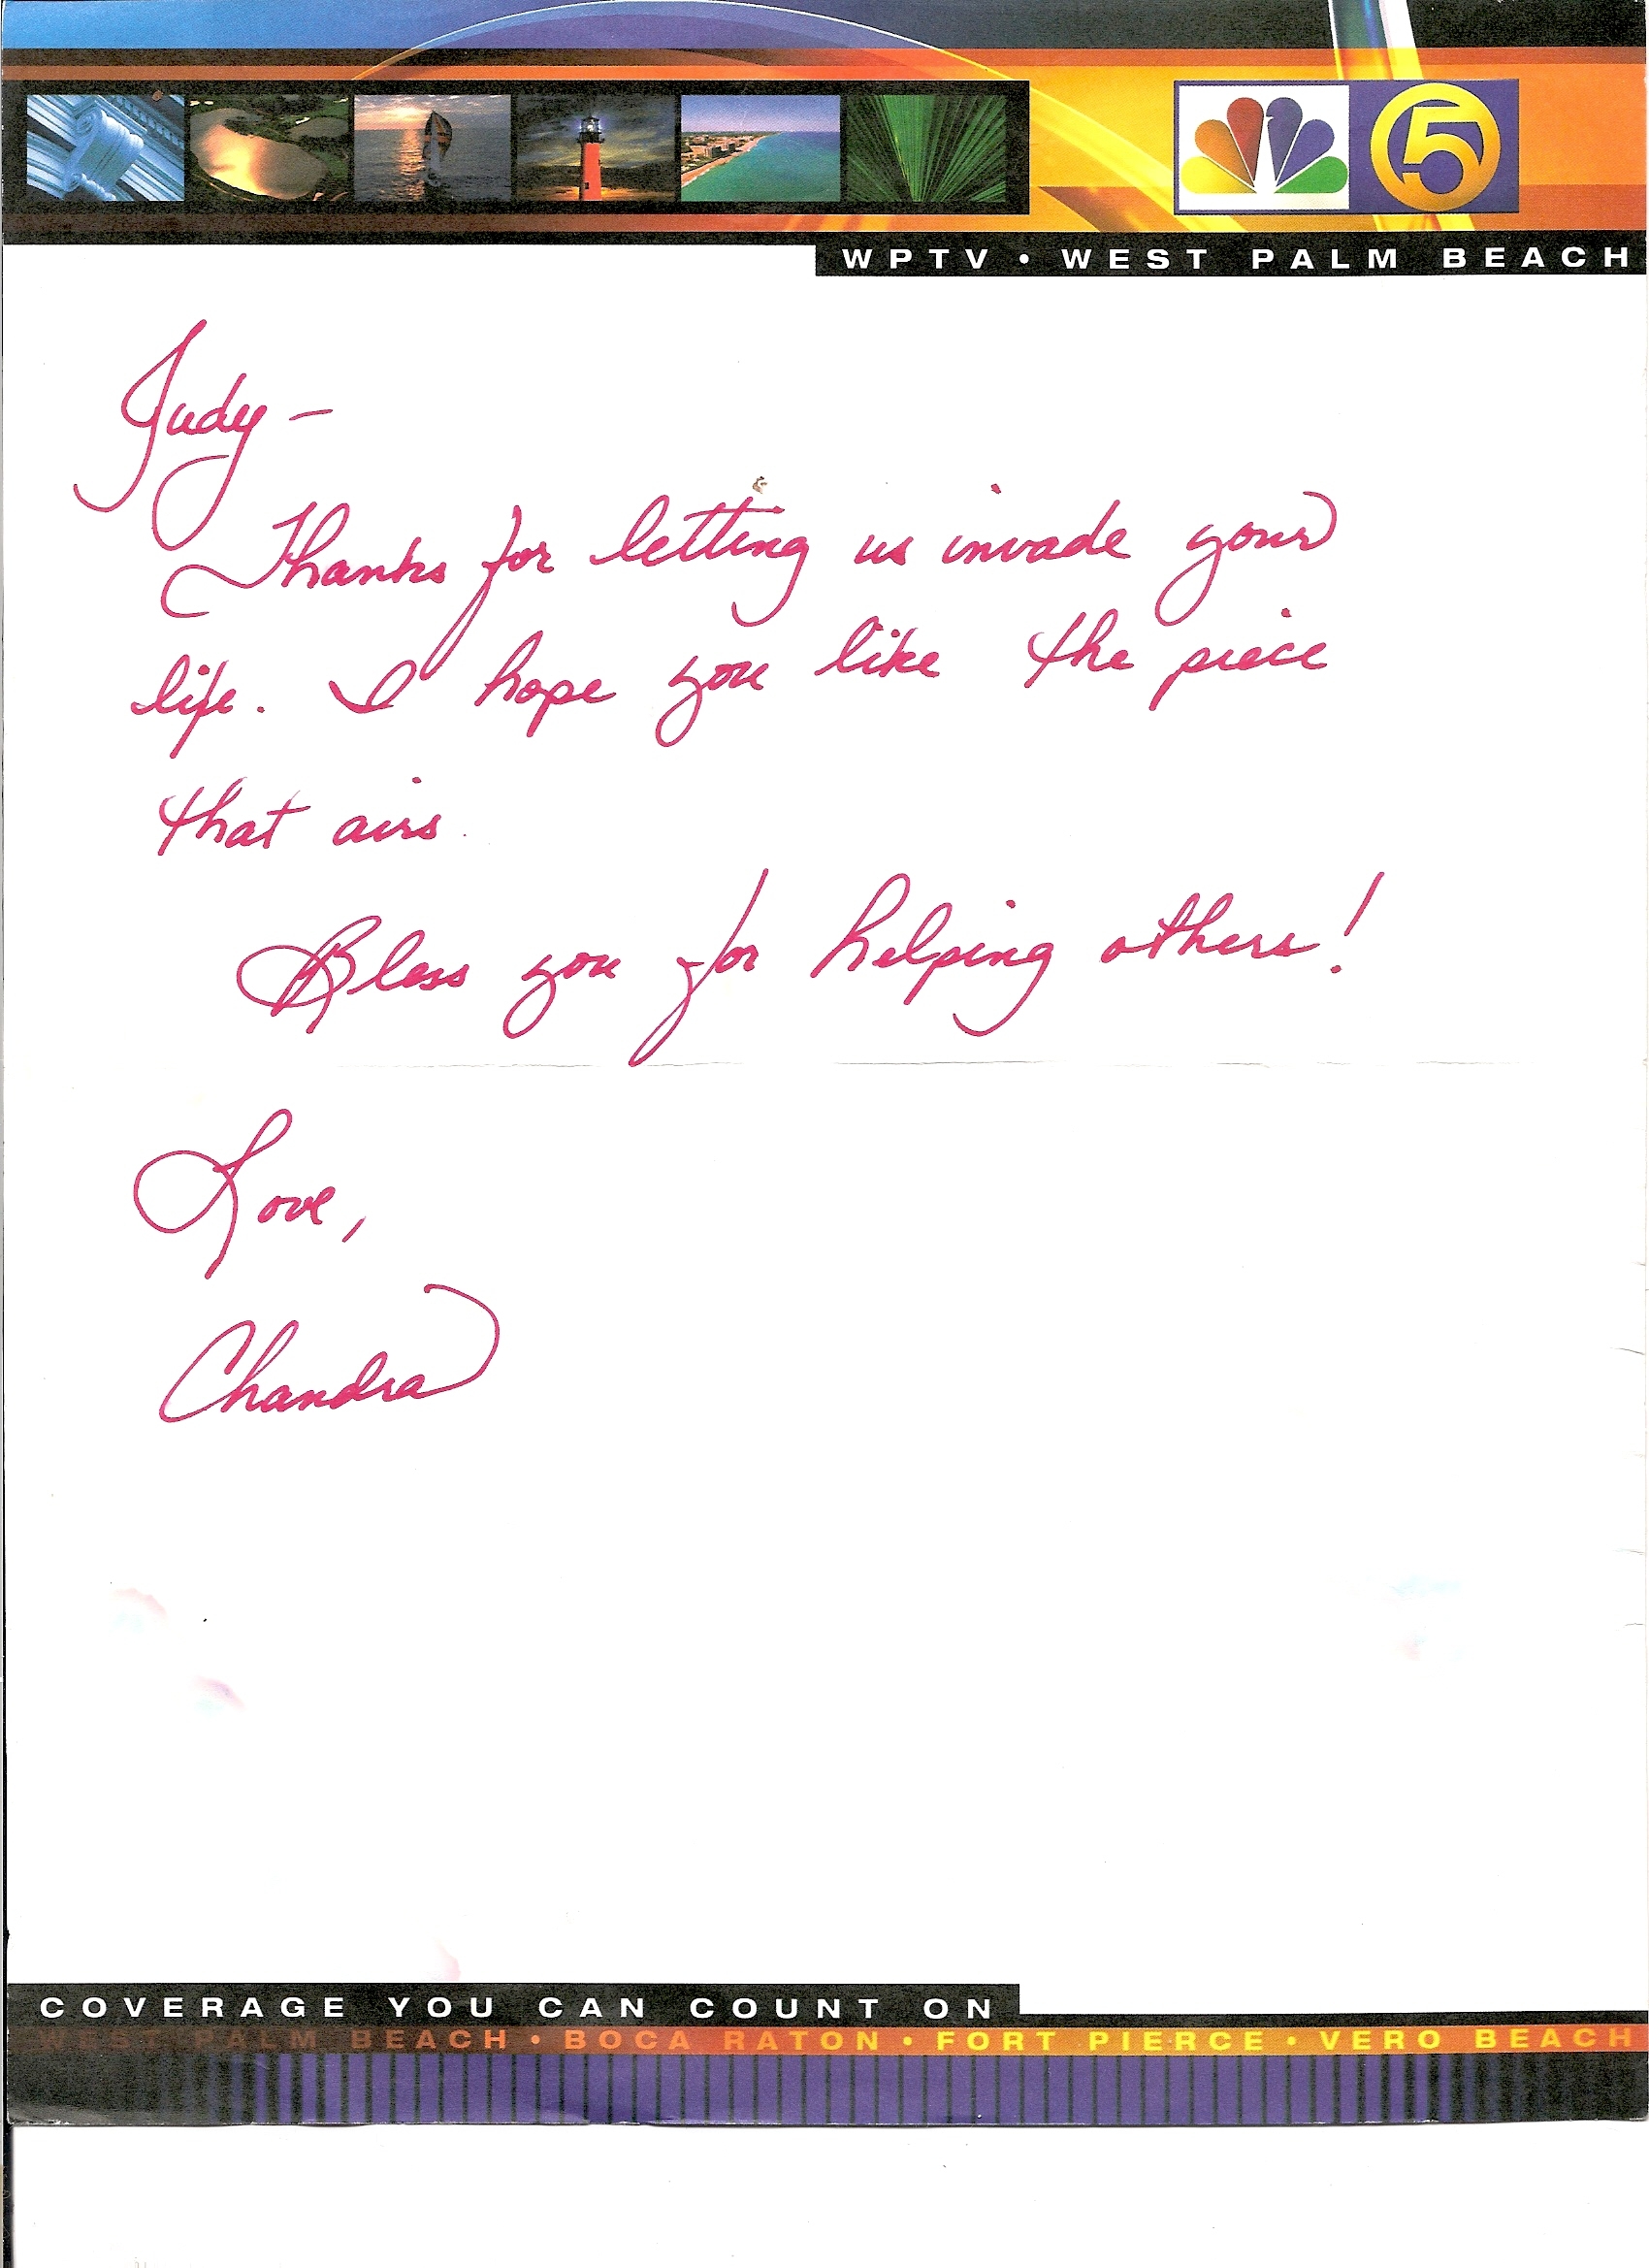 5
WPTV • WEST PALM BEACH
Judy –
Thanks for letting us invade your
life. I hope you like the piece
that airs.
Bless you for helping others!
Love,
Chandra
COVERAGE YOU CAN COUNT ON
WEST PALM BEACH • BOCA RATON • FORT PIERCE • VERO BEACH